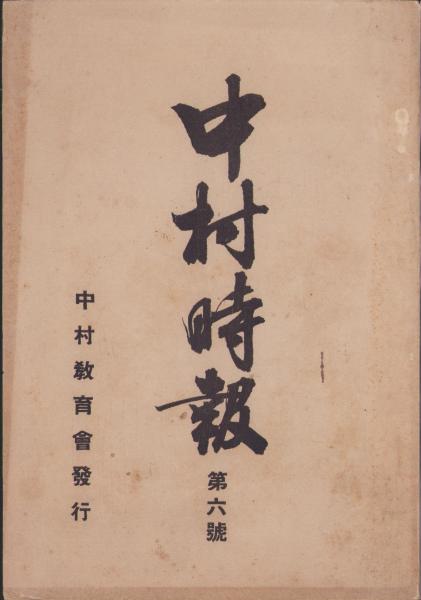 中村時報
第六號
中村敎育會發行